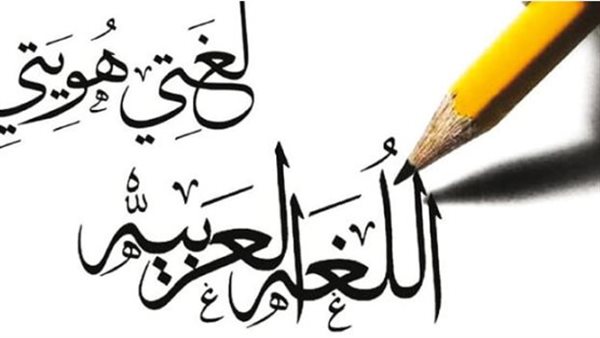 لغَتِي هُوِيَتِي
اللُغَه العَربيه